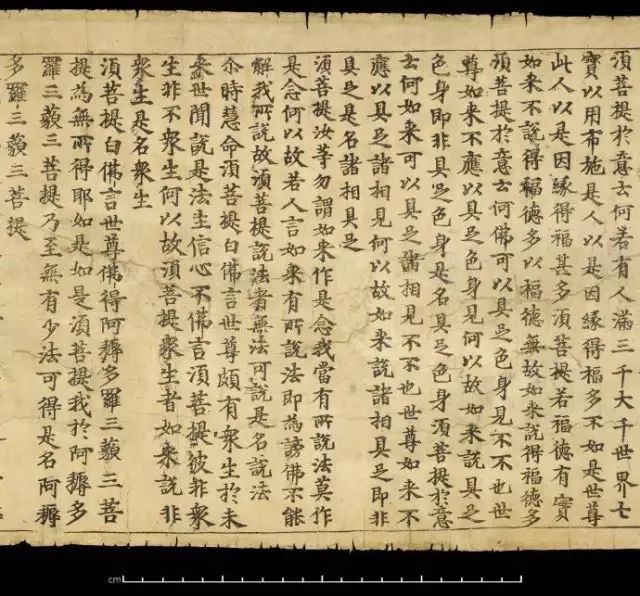 湏菩提於意云何若有人滿三千大千世界七
寶以用布施是人以是因緣得福多不如是世尊
此人以是因緣得福甚多湏菩提若福德有實
如来不說得福德多以福德無故如来說得福德多
湏菩提於意云何佛可以具足色身見不不也世
尊如来不應以具足色身見何以故如来說具足
色身即非具足色身是名具足色身湏菩提於意
云何如来可以具足諸相見不不也世尊如来不
應以具足諸相見何以故如来說諸相具足即非
具足是名諸相具足
湏菩提汝等勿謂如来作是念我當有所說法莫作
是念何以故若人言如来有所說法即為謗佛不能
解我所說故湏菩提說法者無法可說是名說法
尒時慧命湏菩提白佛言世尊頗有衆生於未
来世聞說是法生信心不佛言湏菩提彼非衆
生非不衆生何以故湏菩提衆生者如来說非
衆生是名衆生
湏菩提白佛言世尊佛得阿耨多羅三藐三菩
提為無所得耶如是如是湏菩提我於阿耨多
羅三藐三菩提乃至無有少法可得是名阿耨
多羅三藐三菩提
cm